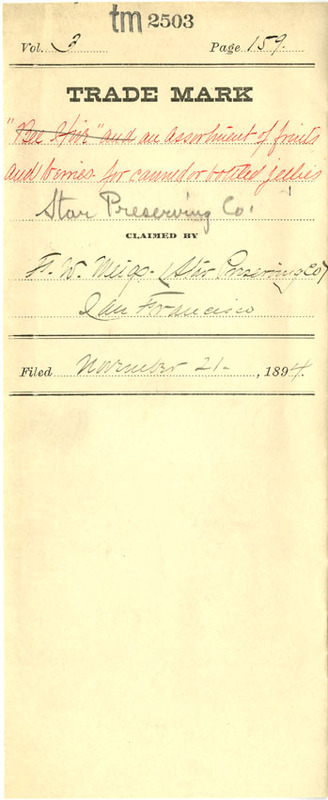 tm 2503
Vol. 3 Page 159.
TRADE MARK
"Bee Hive" and an assortment of fruits
and berries for canned or bottled jellies
Star Preserving Co.
CLAIMED BY
F. W. Meigs. (Star Preserving Co)
San Francisco
Filed November 21-, 1894.